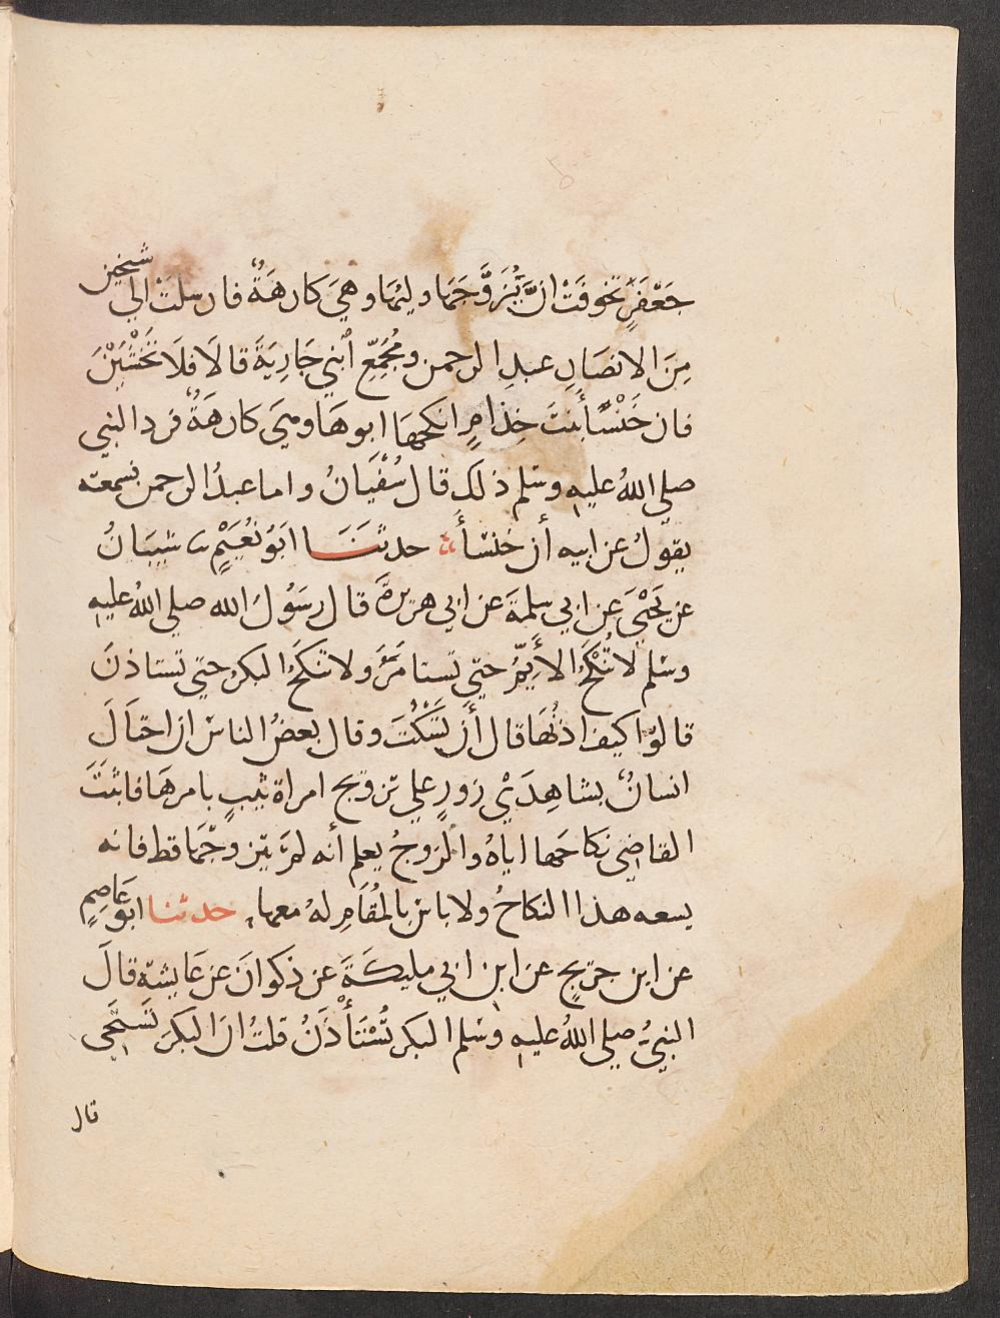 جَعْفَرٍ تخوفَتْ انْ يُزَوَّجَهَا وليُّها وهِيَ كارهَةٌ فارسلتْ الي شيخين
مِنَ الانصَارِ عبدِ الرحمن ومُجَمِّعٍ ابْنَي جَارِيَةَ قالَا فلَا تَخْشَيْنَ
فان خَنْسَأَ بِنتَ خِذامٍ انكحهَا ابوهَا وهيَ كارهَةٌ فرد النبي
صلي اللهُ عليهِ وسَلم ذلك قال سُفْيَانُ واما عبدُ الرحمن فسمعته
يقولُ عن ابيه أن خنسَأَ حدثنَا ابَوُ نُعَيْمٍ نا شيبَانُ
عن يَحْيَي عن ابي سلمةَ عن ابي هريرةَ قال رسَوُلُ الله صلي اللهُ عليهِ
وسَلم لا تُنْكَحُ الأَيِّمُ حتي تستامَرَ ولا تنكَحُ البكرُ حتي تستاذنَ
قالوا كيف اذنُهَا قال أن تَسْكُتَ وقال بعضُ الناسْ ان احتَالَ
انسانٌ بشاهِدَيْ زورٍ علي تزويج امراة ثيبٍ بامرهَا فاثبَتَ
القاضِي نكاحَها اياهُ والزوجُ يعلم أنه لم يتزوجْهَا قط فانه
يسعه هذا النكاحُ ولا باس بالمُقَامِ لهُ معها حدثنا ابو عَاصِمٍ
عن ابن جريجٍ عن ابن ابي مليكَةَ عن ذكوانَ عن عَايشة قالَ
النبيُّ صلي اللهُ عليهِ وسَلم البكر تُسْتَأْذَنُ قلتُ ان البكرَ تَستَحِي
قال